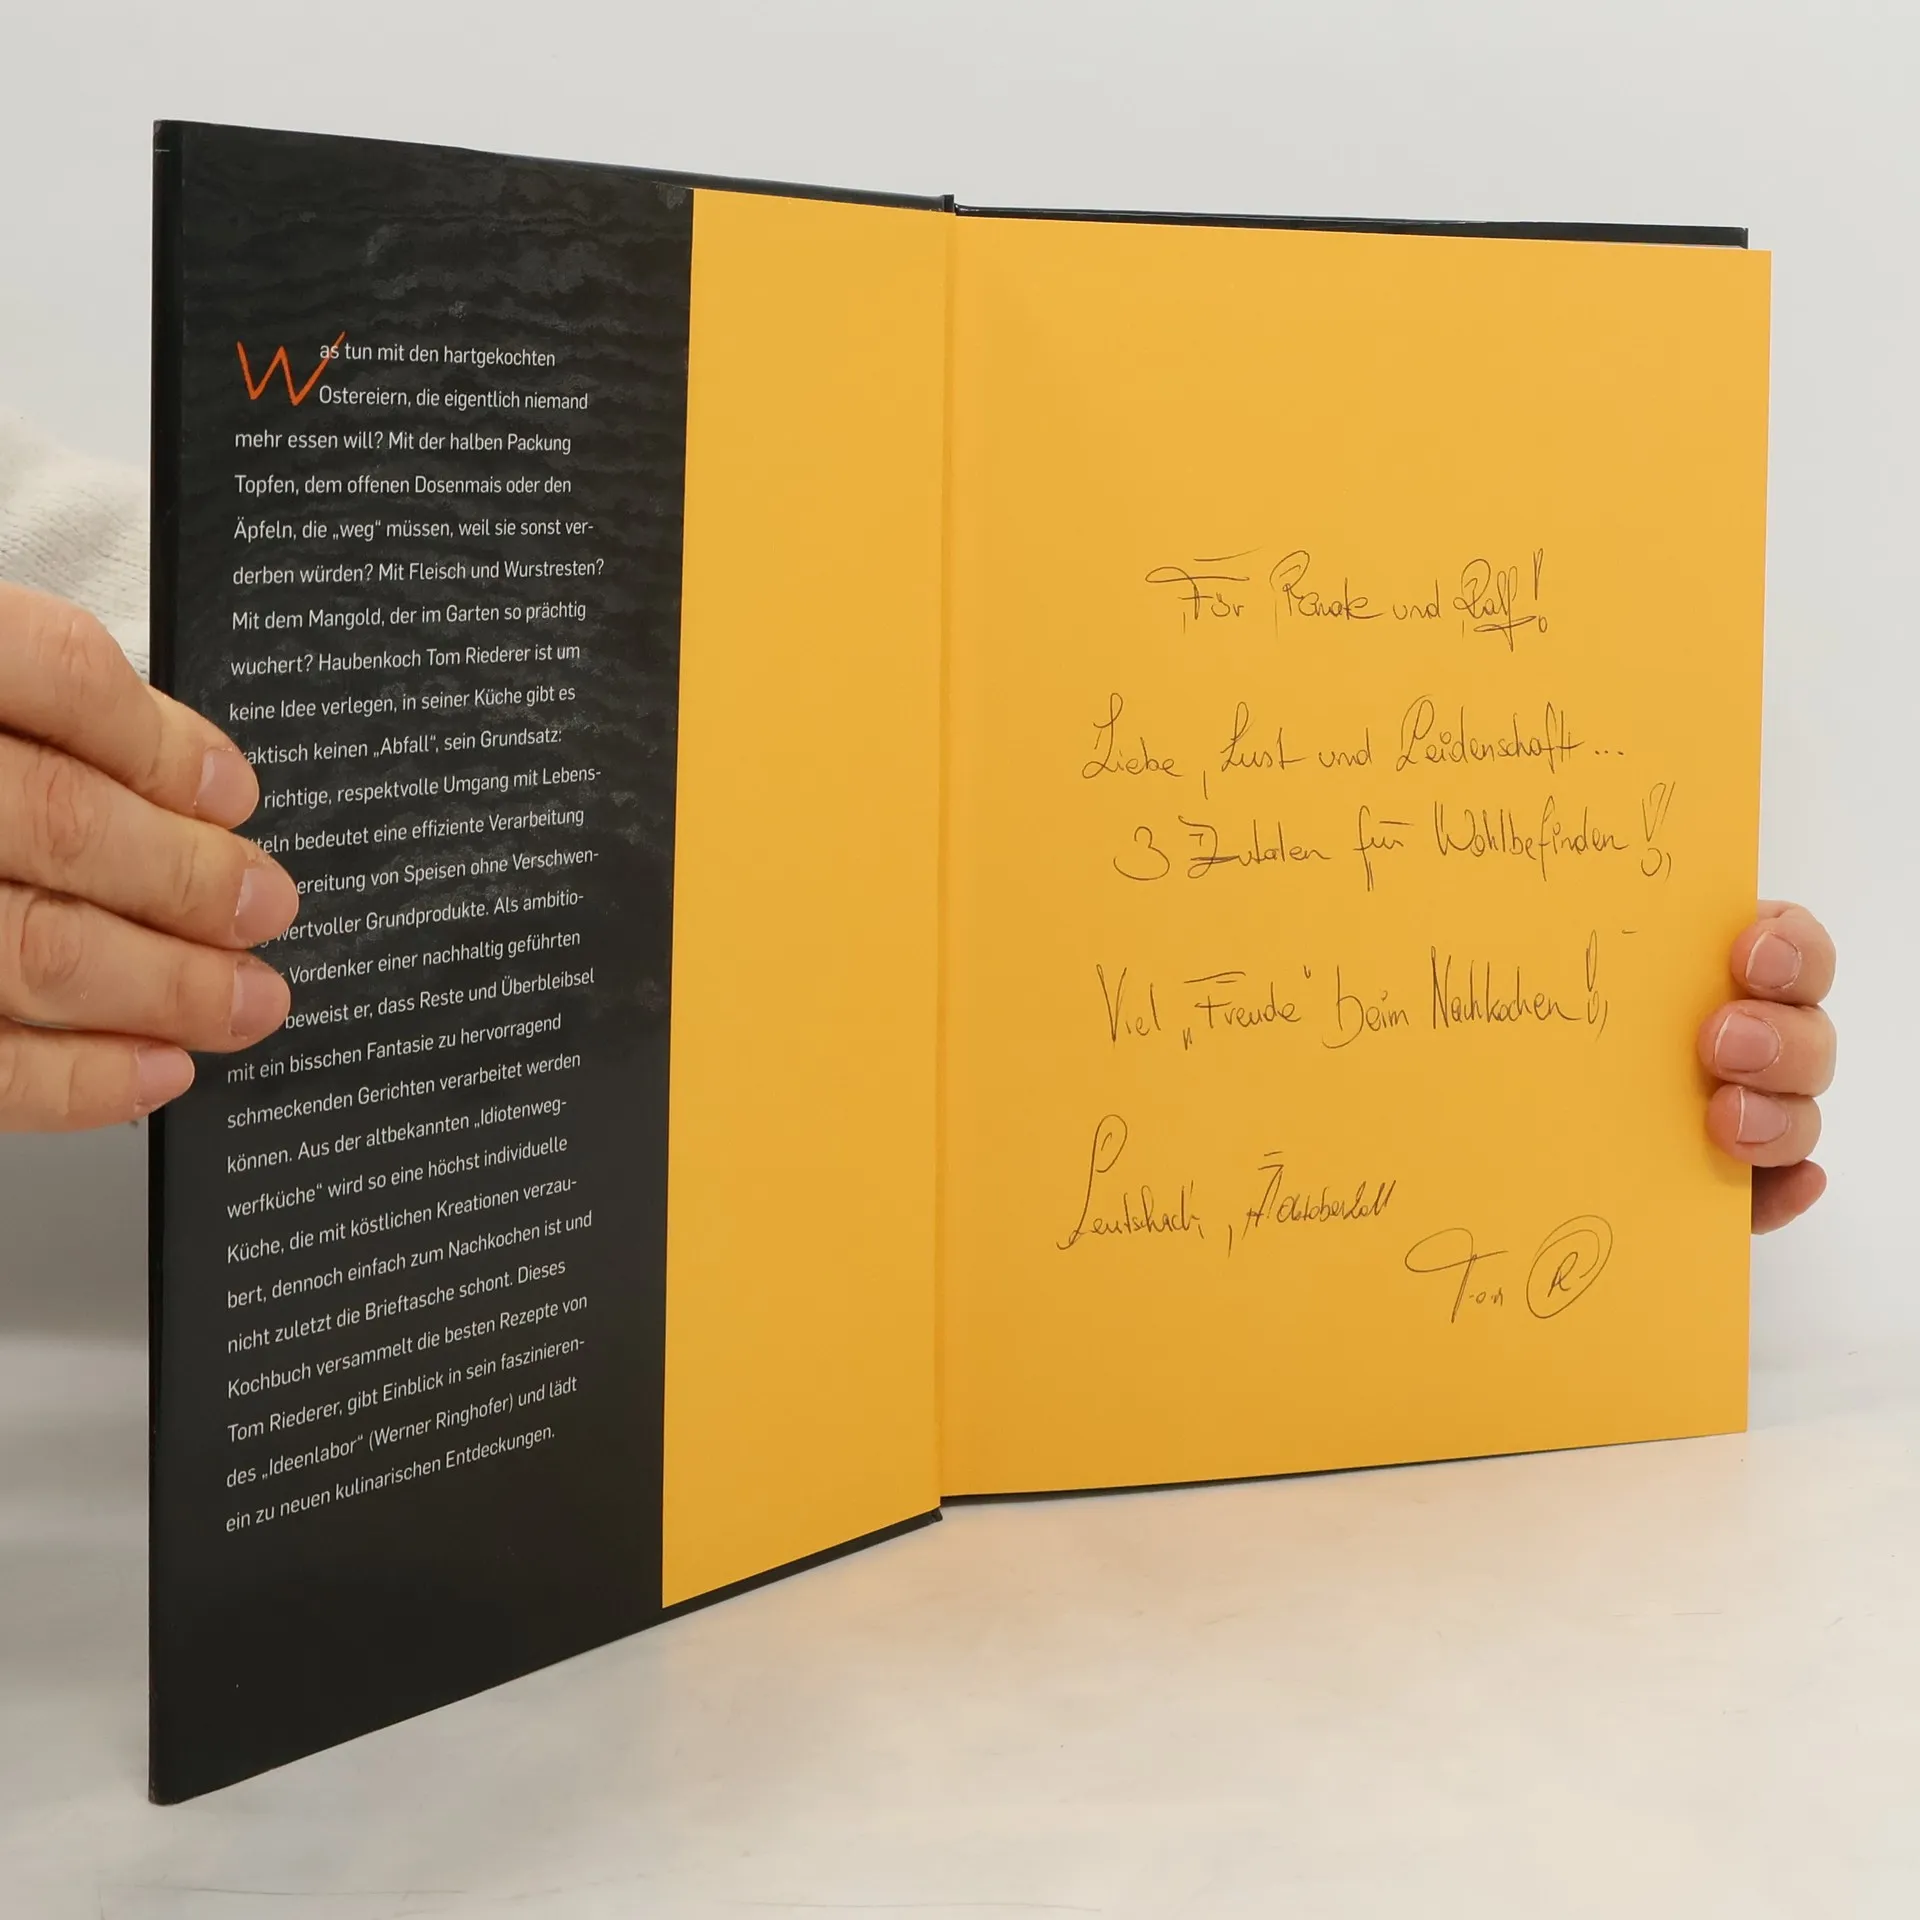 Was tun mit den hartgekochten
Ostereiern, die eigentlich niemand
mehr essen will? Mit der halben Packung
Topfen, dem offenen Dosenmais oder den
Äpfeln, die „weg“ müssen, weil sie sonst ver-
derben würden? Mit Fleisch und Wurstresten?
Mit dem Mangold, der im Garten so prächtig
wuchert? Haubenkoch Tom Riederer ist um
keine Idee verlegen, in seiner Küche gibt es
aktisch keinen „Abfall“, sein Grundsatz:
richtige, respektvolle Umgang mit Lebens-
teln bedeutet eine effiziente Verarbeitung
ereitung von Speisen ohne Verschwen-
wertvoller Grundprodukte. Als ambitio-
Vordenker einer nachhaltig geführten
beweist er, dass Reste und Überbleibsel
mit ein bisschen Fantasie zu hervorragend
schmeckenden Gerichten verarbeitet werden
können. Aus der altbekannten „Idiotenweg-
werfküche“ wird so eine höchst individuelle
Küche, die mit köstlichen Kreationen verzau-
bert, dennoch einfach zum Nachkochen ist und
nicht zuletzt die Brieftasche schont. Dieses
Kochbuch versammelt die besten Rezepte von
Tom Riederer, gibt Einblick in sein faszinieren-
des „Ideenlabor“ (Werner Ringhofer) und lädt
ein zu neuen kulinarischen Entdeckungen.
Für Renate und Ralf!
Liebe, Lust und Leidenschaft...
3 Zutaten für Wohlbefinden!!
Viel „Freude“ beim Nachkochen!
Leutschach, Oktober
Tom R